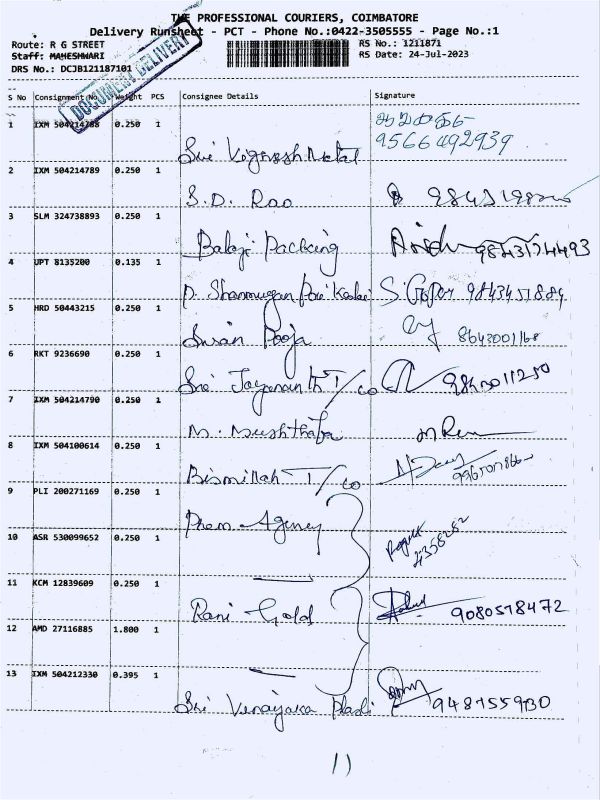 THE PROFESSIONAL COURIERS, COIMBATORE
Delivery Runsheet - PCT - Phone No.:0422-3505555 - Page No.:1
Route: R G STREET RS No.: 1211871
Staff: MAHESHWARI RS Date: 24-Jul-2023
DRS No.: DCJB121187101
DOCUMENT DELIVERY
S No Consignment No. Weight PCS Consignee Details Signature
1 IXM 504214788 0.250 1 9566492939
2 IXM 504214789 0.250 1 S.D. Rao
3 SLM 324738893 0.250 1 Balaji Packing
4 UPT 8135200 0.135 1 9843451884
5 HRD 50443215 0.250 1 Susan Pooja 8643001168
6 RKT 9236690 0.250 1 Sri T/co
7 IXM 504214790 0.250 1 M. Mushthafa
8 IXM 504100614 0.250 1 Bismillah T/co
9 PLI 200271169 0.250 1 Prem Agency
10 ASR 530099652 0.250 1
11 KCM 12839609 0.250 1 Rani Gold 9080578472
12 AMD 27116885 1.800 1
13 IXM 504212330 0.395 1 Sri Vinayaka
11